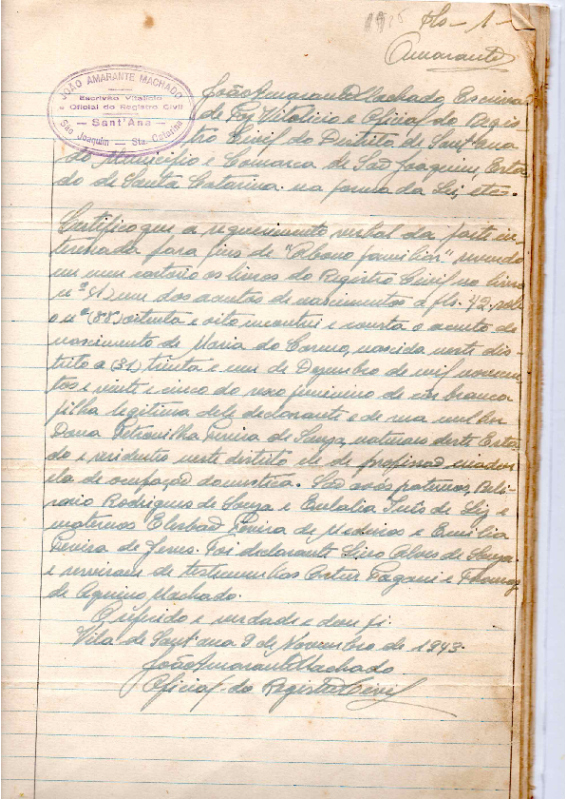 Fls - 1 -
Amarante
JOÃO AMARANTE MACHADO
Escrivão Vitalício
e Oficial do Registro Civil
— Sant'Ana —
São Joaquim — Sta. Catarina
João Amarante Machado, Escrivão
de Paz Vitalicio e Oficial do Regis
tro Civil do Distrito de Sant'ana
do Municipio e Comarca de São Joaquim, Esta
do de Santa Catarina. na forma da Lei, etc.
Certifico que a requerimento verbal da parte in-
teressada para fins de "Abono familiar" revendo
em meu cartorio os livros do Registro Civil no livro
nº (A) um dos acentos de nascimentos a fls. 42, sob
o nº (88) oitenta e oito encontrei e consta o acento de
nascimento de Maria do Carmo, nascida neste dis-
trito a (31) trinta e um de Dezembro de mil novecen
tos e vinte e cinco do sexo feminino de côr branca
filha legitima dele declarante e de sua mulher
Dona Petronilha Pereira de Souza, naturais deste Esta
do e residentes neste distrito ele de profissão criador
ela de ocupação domestica. São avós paternos,
Rodrigues de Souza e Eulalia Inês de Liz e
maternos Pereira de Medeiros e Emilia
Pereira de Jesus. Foi declarante Lino Alves de Souza
e serviram de testemunhas Artur Pagani e Thomaz
de Aquino Machado.
O referido é verdade e dou fé.
Vila de Sant'ana 9 de Novembro de 1943.
João Amarante Machado
Oficial do Registro Civil